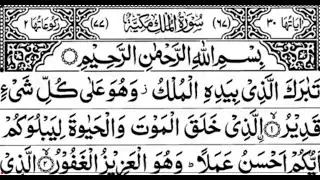 اٰیَاتُهَا ٣٠ (٦٧) سُوْرَةُ الْمُلْكِ مَكِّيَّةٌ (٧٧) رُكُوْعَاتُهَا ٢
بِسْمِ اللّٰهِ الرَّحْمٰنِ الرَّحِيْمِ
تَبٰرَكَ الَّذِيْ بِيَدِهِ الْمُلْكُ ز وَهُوَ عَلٰى كُلِّ شَيْءٍ
قَدِيْرُ ۙ۝١ الَّذِيْ خَلَقَ الْمَوْتَ وَالْحَيٰوةَ لِيَبْلُوَكُمْ
اَيُّكُمْ اَحْسَنُ عَمَلًا ؕ وَهُوَ الْعَزِيْزُ الْغَفُوْرُ ۙ۝٢ الَّذِيْ